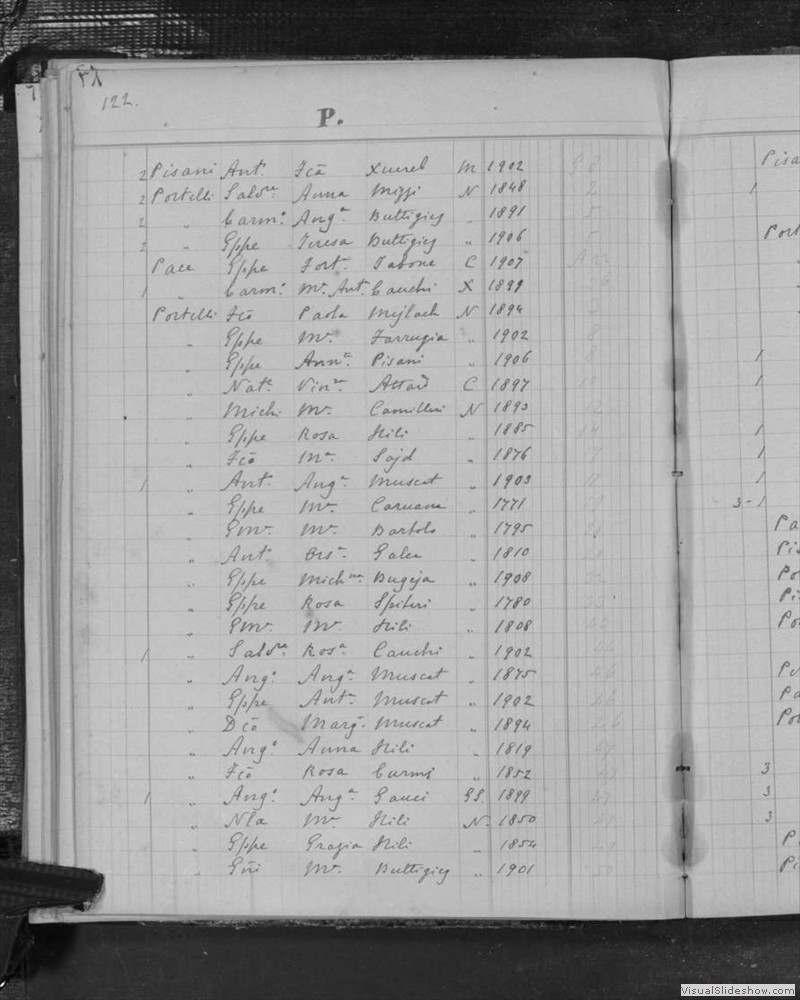 122.
P.
2 Pisani Ant. Fcō Xuereb M 1902
2 Portelli Salvre Anna Mizzi N 1848 2
2 " Carmo. Anga. Buttigieg " 1891 5
2 " Gppe Teresa Buttigieg " 1906 5
Pace Gppe Fort. Tabone C 1907
1 " Carmo. Ma. Ant. Cauchi X 1899
Portelli Fcō Paola Mejlach N 1894
" Gppe Ma. Farrugia " 1902 8
" Gppe Anna. Pisani " 1906 8
" Nat. Vinca Attard C 1897
" Michi Ma. Camilleri N 1893 12
" Gppe Rosa Hili " 1885 14
" Fcō Ma. Sajd " 1876
1 " Ant. Anga. Muscat " 1903 17
" Gppe Ma. Caruana " 1771
" Gma. Ma. Bartolo " 1795
" Ant. Ors. Galea " 1810
" Gppe Michna Bugeja " 1908
" Gppe Rosa Spiteri " 1780
" Gma. Ma. Hili " 1808
1 " Salvre Rosa Cauchi " 1902 44
" Ango. Anga Muscat " 1875 46
" Gppe Ant. Muscat " 1902 46
" Dcō Marg. Muscat " 1894
" Ango. Anna Hili " 1819 47
" Fcō Rosa Curmi " 1852
1 " Ango. Anga Gauci GS. 1899 47
" Nla Ma. Hili N. 1850
" Gppe Grazia Hili " 1854
" Gñi Ma. Buttigieg " 1901 50
Pisa
1
Port
1
1
1
1
1
3-1
Pa
Pis
Po
Pi
Po
Pa
Po
3
3
3
P
Pi
VisualSlideshow.com